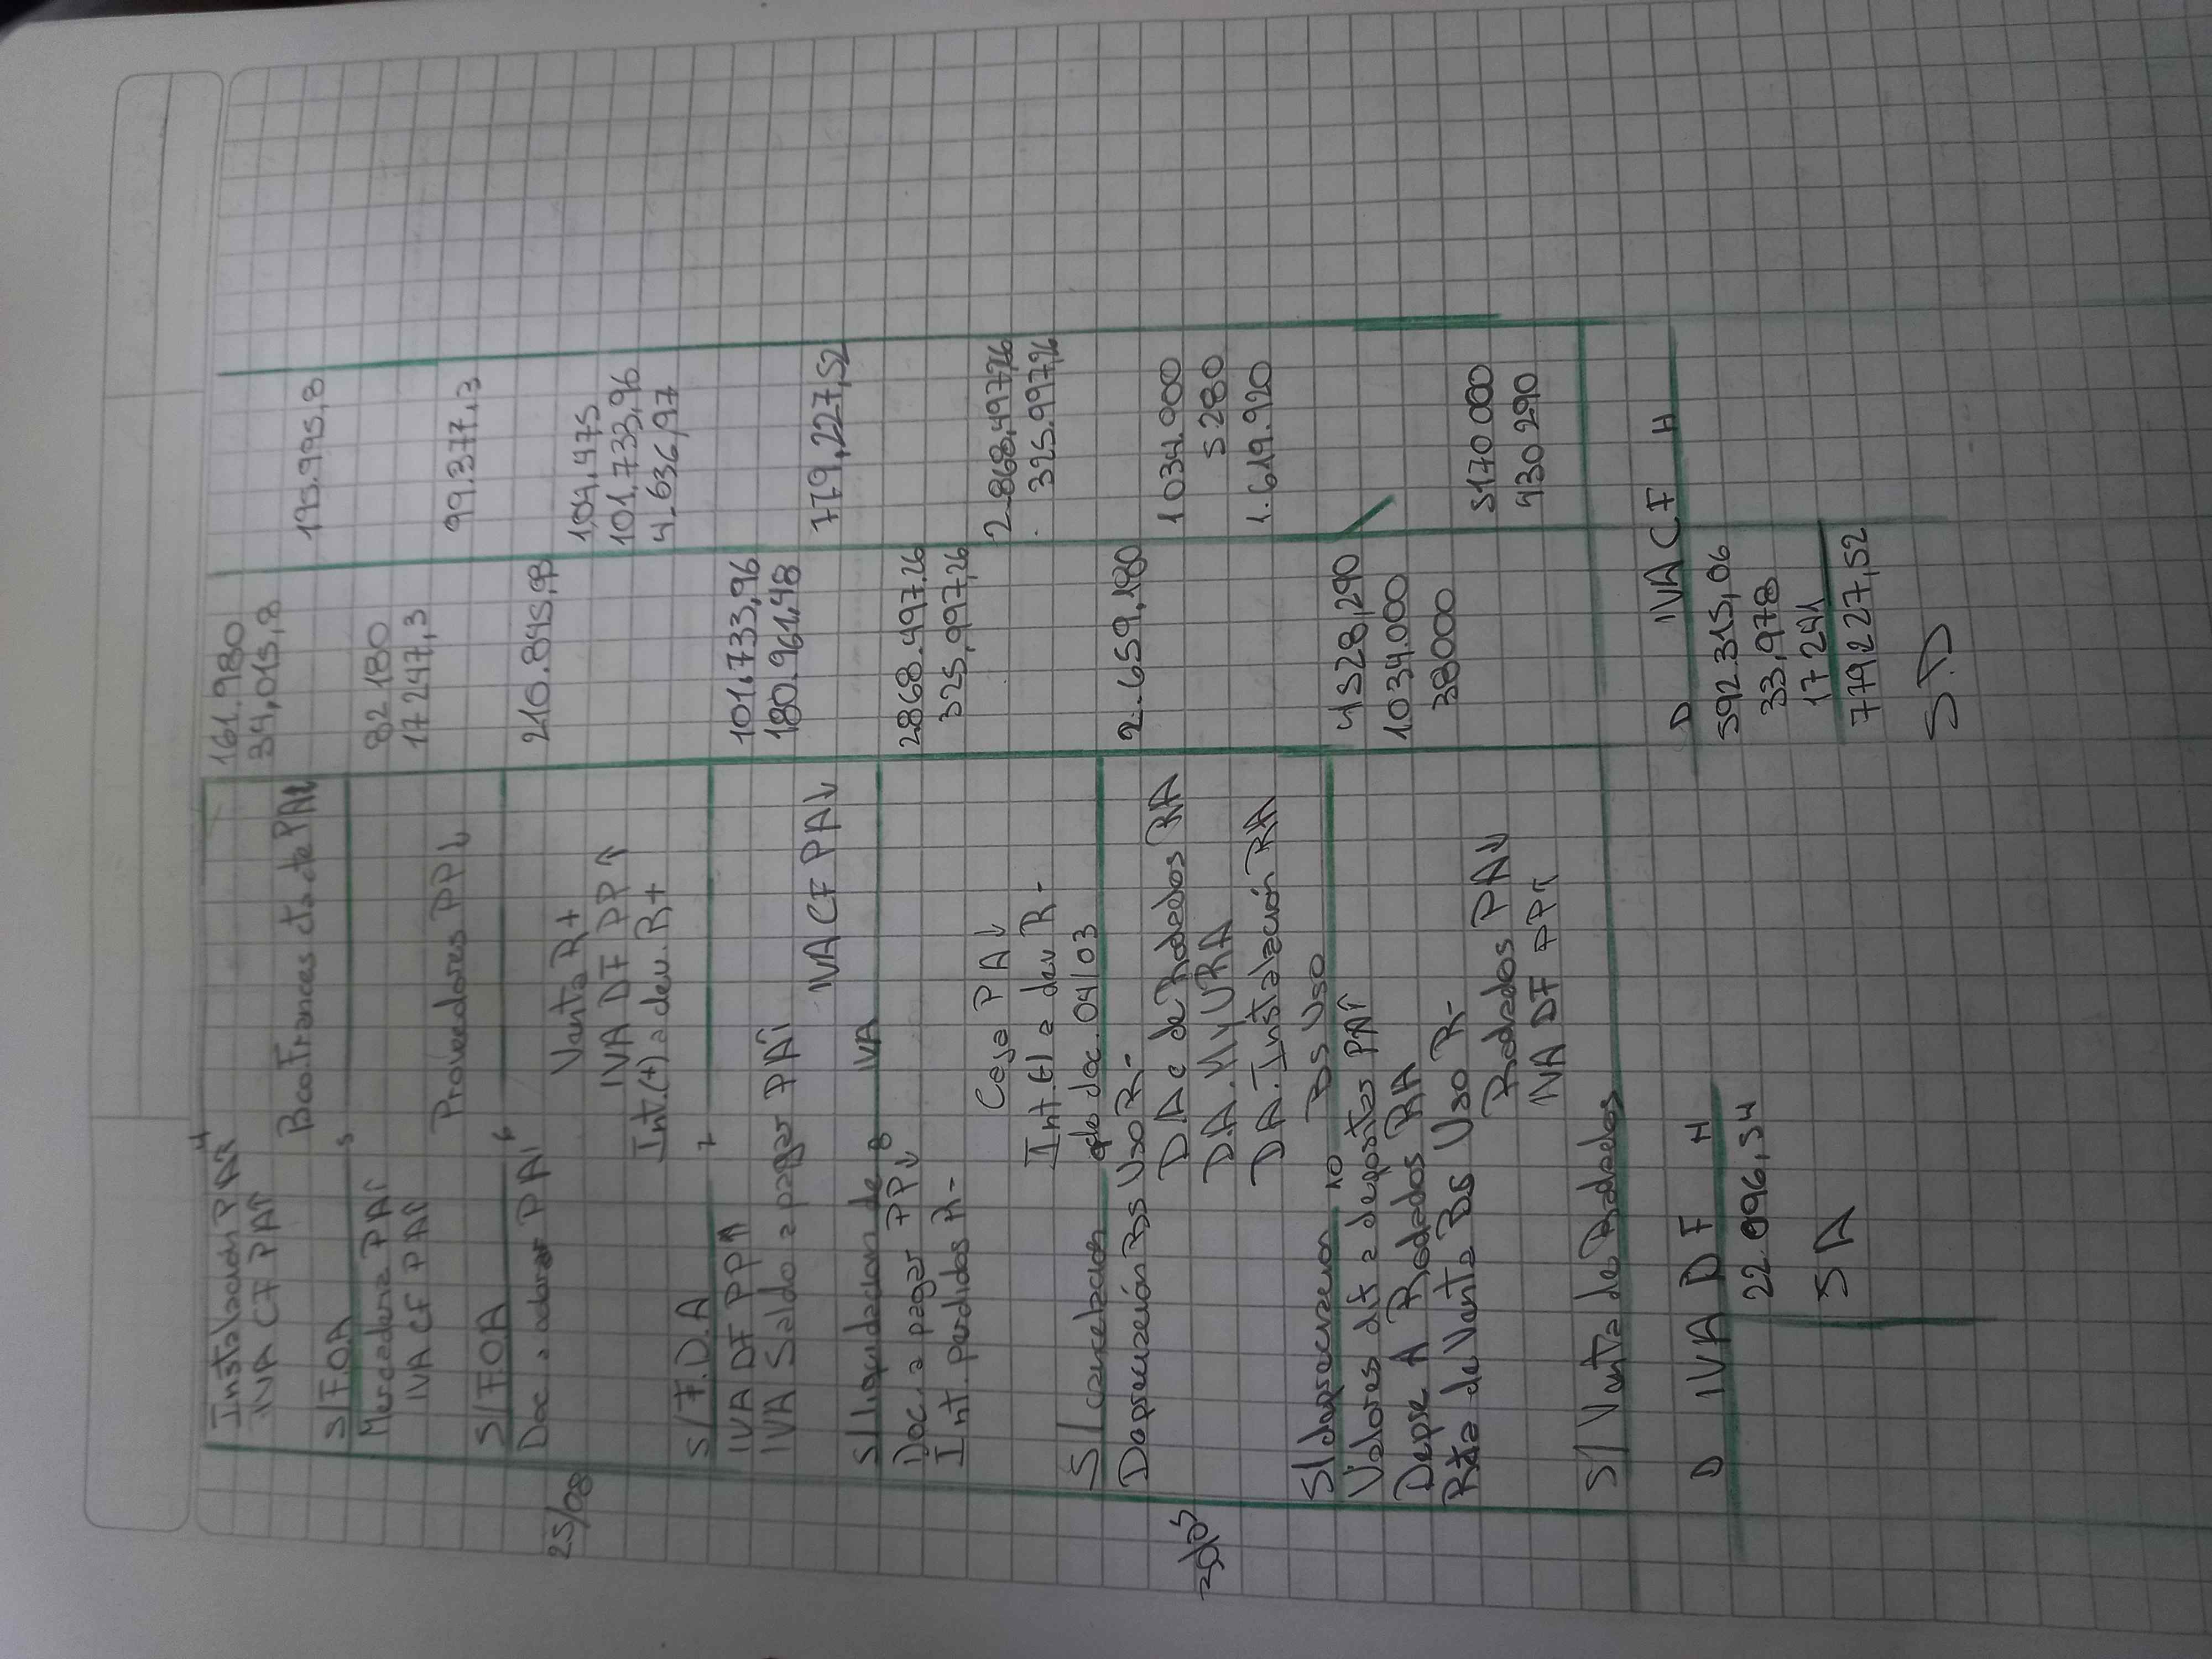 Instalación PA↑ 161.980
IVA CF PA↑ 34,015,8
Bco Frances cta cte PA↓ 195.995,8
S/F.O.A
5
Mercaderia PA↑ 82180
IVA CF PA↑ 17247,3
Proveedores PP↓ 99.377,3
S/F.O.A
6
25/08 Doc. a cobrar PA↑ 210.845,93
Venta R+ 104,475
IVA DF PP↑ 101,733,96
Int.(+) a dev. R+ 4.636,97
S/F.D.A
7
IVA DF PP↑ 101.733,96
IVA Saldo a pagar PA↑ 180.961,48
IVA CF PA↓ 779,227,52
S/liquidacion de IVA
8
Doc. a pagar PP↓ 2868.497,26
Int. perdidos R- 325,997,26
Caja PA↓ 2.868,497,26
Int.(-) a dev R- 325.997,26
S/cancelacion de doc. 04/03
Depreciación Bs Uso R- 2.659,180
DAc de Rodados RA 1034.000
D.A. M y U RA 5280
DA. Instalación RA 1.619.920
S/depreciacion Bs Uso
10
Valores dif a depositar PA↑ 4528,290
Depre A Rodados RA 1034.000
Rta de Venta Bs Uso R- 38000
Rodados PA↓ 5170000
IVA DF PP↑ 430290
S/Venta de Rodados
D IVA DF H
22.096,34
SA
D IVA CF H
592.315,06
33,978
17241
779227,52
S.D